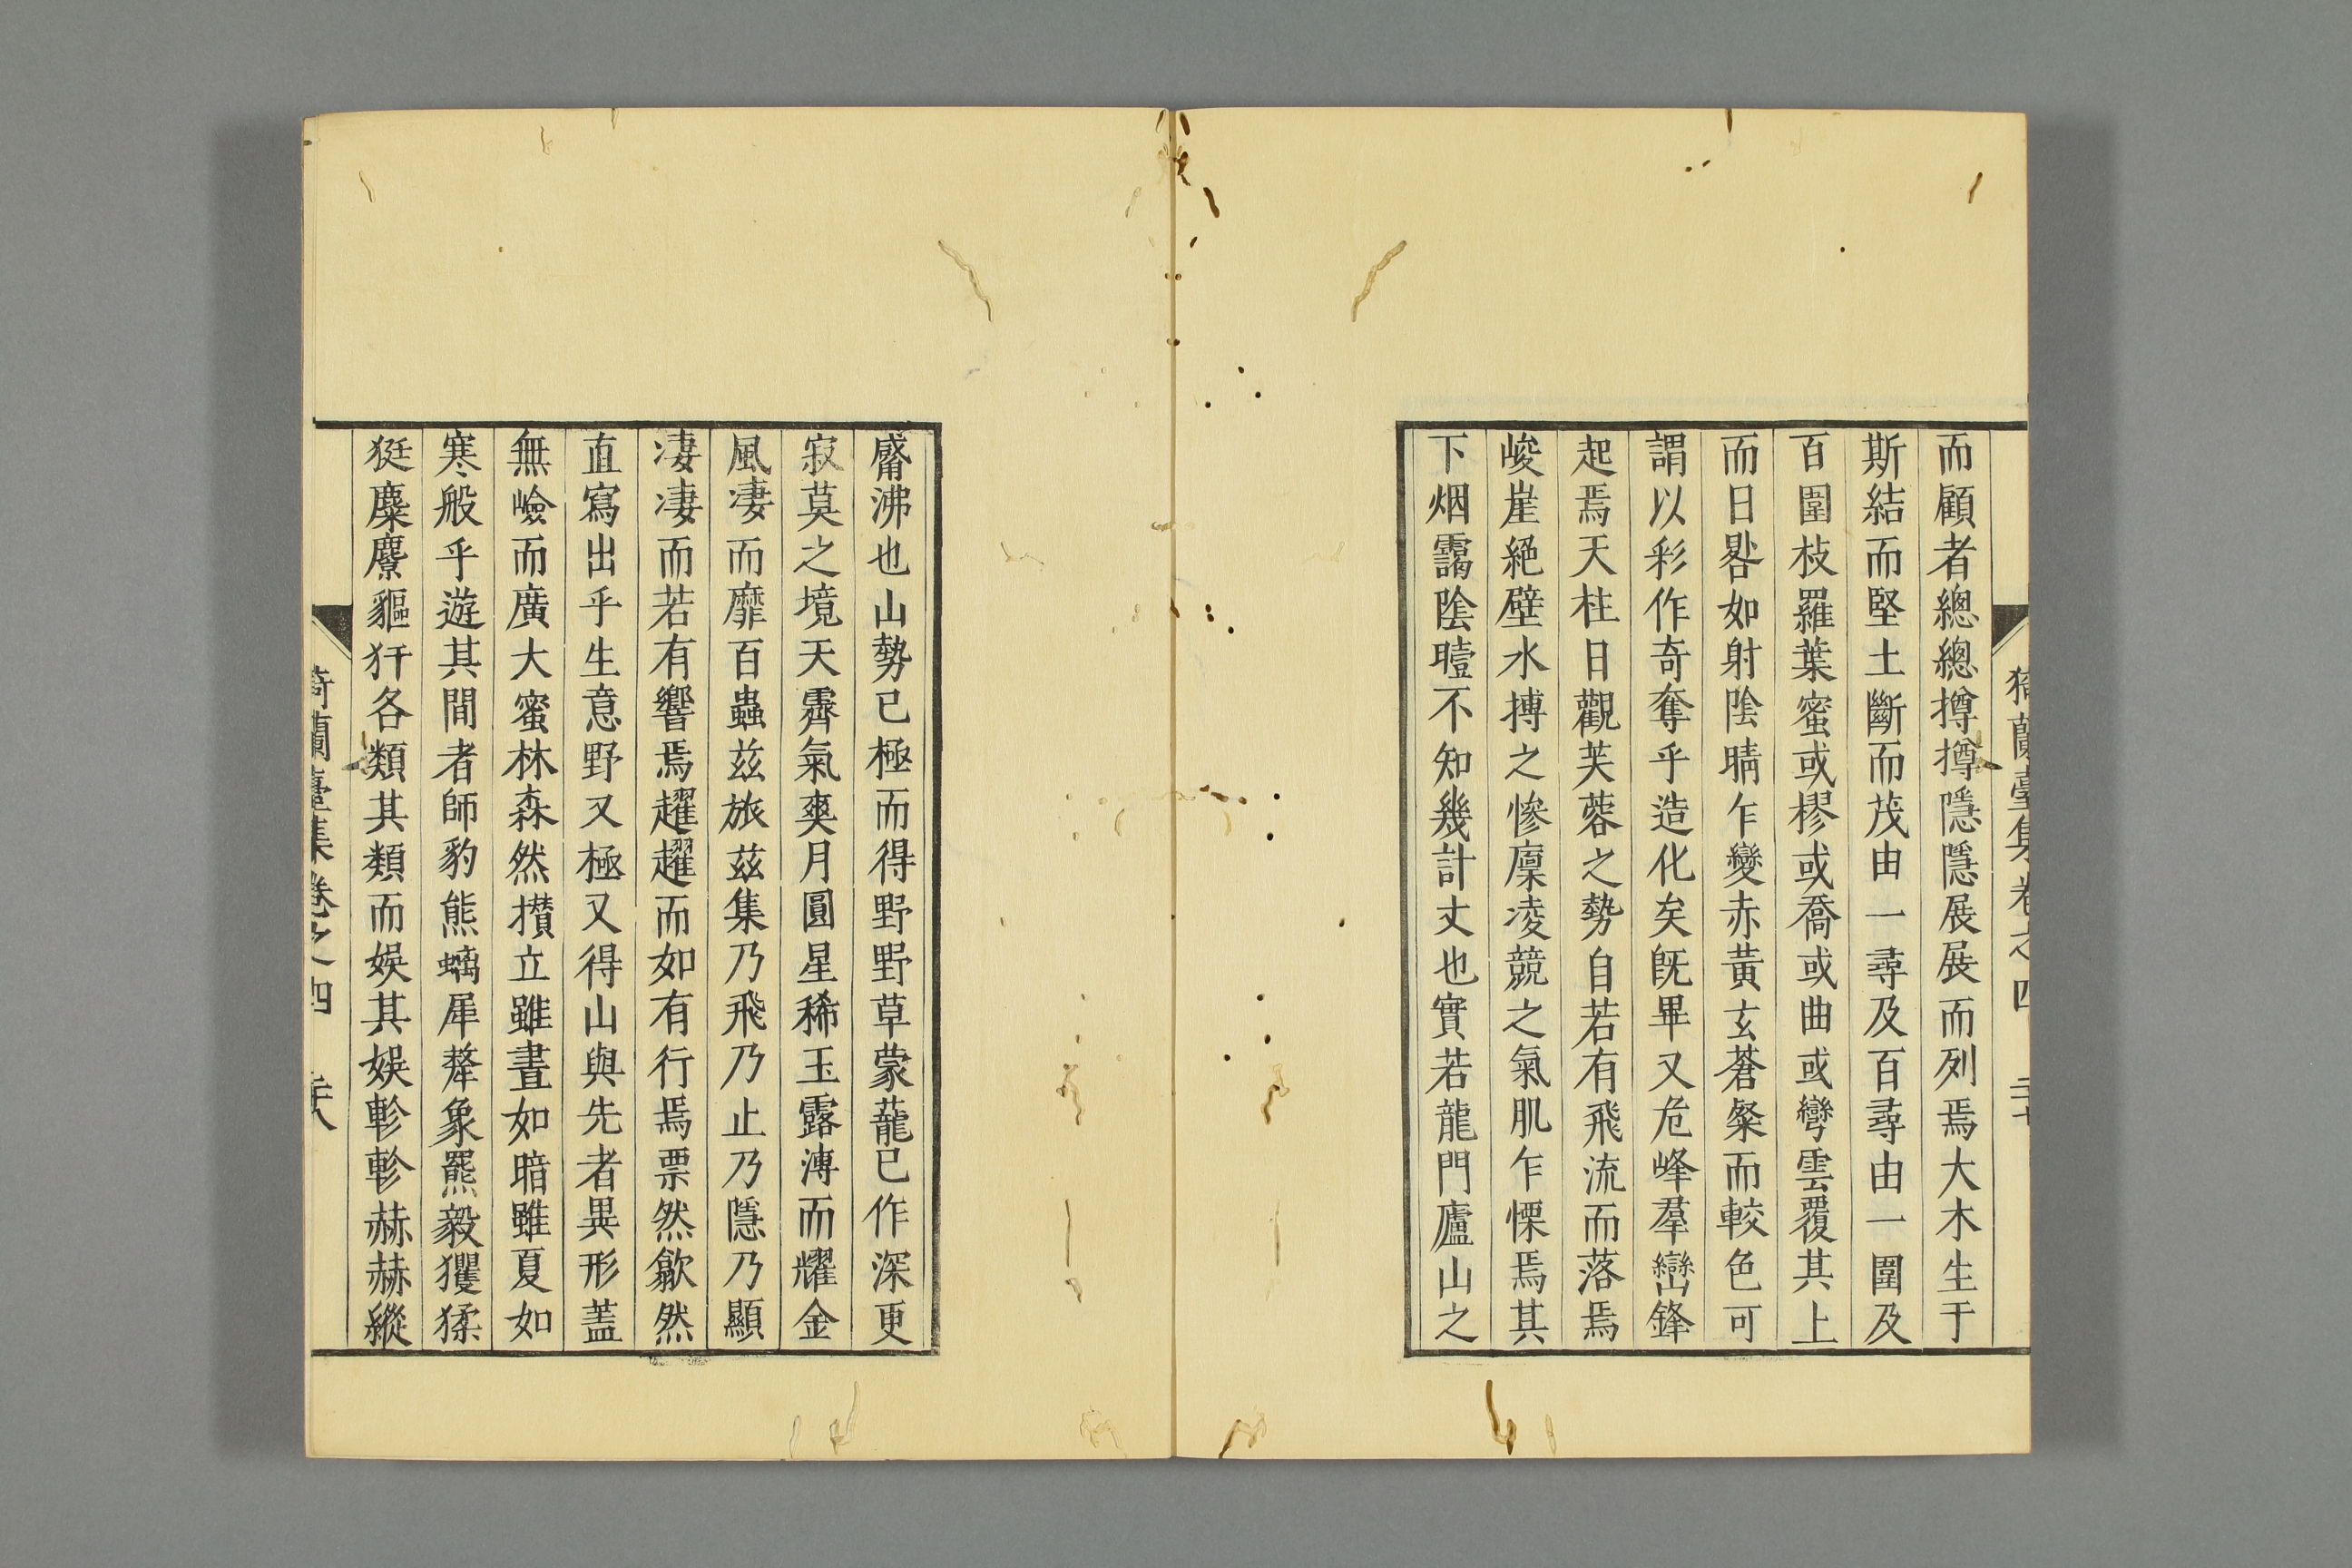 猗蘭臺集卷之四
而顧者總總撙撙隱隱展展而列焉大木生于
斯結而堅土斷而茂由一尋及百尋由一圍及
百圍枝羅葉蜜或樛或喬或曲或彎雲覆其上
而日晷如射陰晴乍變赤黃玄蒼粲而較色可
謂以彩作奇奪乎造化矣既畢又危峰羣巒鋒
起焉天柱日觀芙蓉之勢自若有飛流而落焉
峻崖絕壁水搏之慘廩凌競之氣肌乍慄焉其
下烟靄陰曀不知幾計丈也實若龍門廬山之
觱沸也山勢已極而得野野草蒙蘢已作深更
寂莫之境天霽氣爽月圓星稀玉露漙而耀金
風凄而靡百蟲茲旅茲集乃飛乃止乃隱乃顯
凄凄而若有響焉趯趯而如有行焉票然歙然
直寫出乎生意野又極又得山與先者異形蓋
無嶮而廣大蜜林森然攢立雖晝如暗雖夏如
寒般乎遊其間者師豹熊螭犀犛象羆毅玃猱
狿麋麖貙犴各類其類而娛其娛軫軫赫赫縱
猗蘭臺集卷之四 二十八